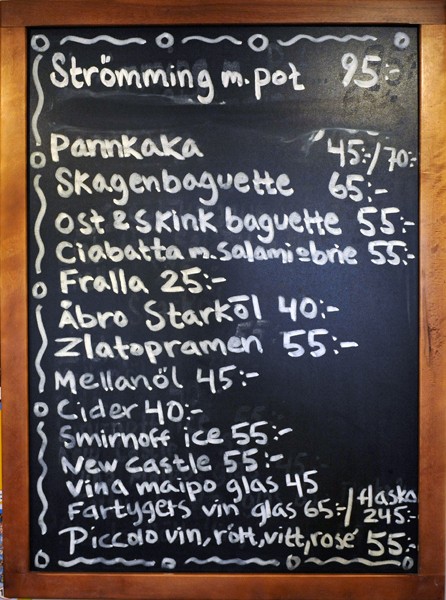 Strömming m. pot 95:-
Pannkaka 45:-/70:-
Skagenbaguette 65:-
Ost & Skink baguette 55:-
Ciabatta m. Salami o brie 55:-
Fralla 25:-
Åbro Starköl 40:-
Zlatopramen 55:-
Mellanöl 45:-
Cider 40:-
Smirnoff ice 55:-
New Castle 55:-
Vina maipo glas 45
Fartygets vin glas 65:-/flaska 245:-
Piccolo vin, rött, vitt, rosé 55:-